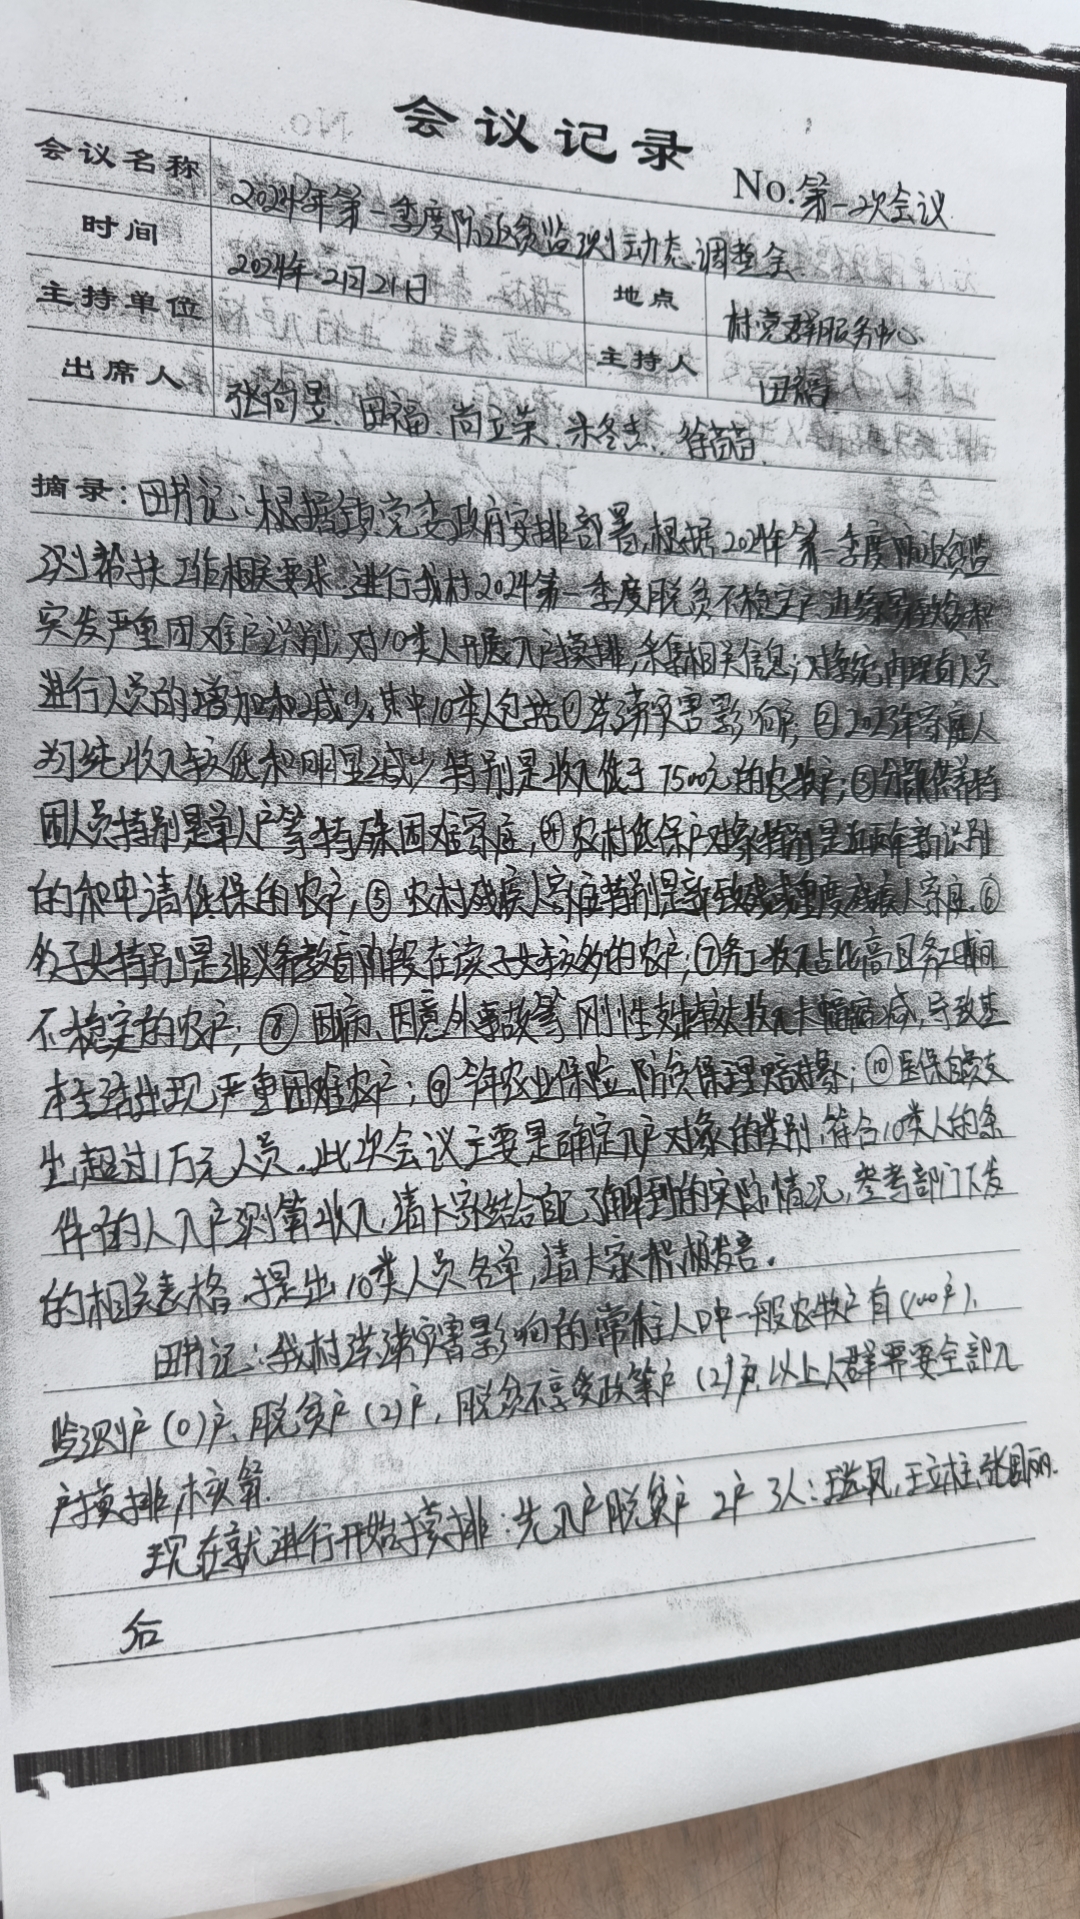 会议记录
No. 第一次会议
会议名称 2024年第一季度防返贫监测动态调整会
时间 2024年2月21日 地点 村党群服务中心
主持单位 主持人 田福
出席人 田福、尚立荣、朱冬杰、徐苗苗
摘录：田书记：根据镇党委政府安排部署，根据2024年第一季度防返贫监
测帮扶工作相关要求，进行我村2024第一季度脱贫不稳定户、边缘易致贫和
突发严重困难户识别，对10类人开展入户摸排，采集相关信息；对系统内现有人员
进行人员的增加和减少。其中10类人包括①洪涝灾害影响户；②2023年家庭人
均纯收入较低和明显减少特别是收入低于7500元的农牧户；③分散供养特
困人员特别是单人户等特殊困难家庭；④农村低保户对象特别是近两年新识别
的和申请低保的农户；⑤农村残疾人家庭特别是新致残或重度残疾人家庭；⑥
多子女特别是非义务教育阶段在读子女较多的农户；⑦务工收入占比高且务工期间
不稳定的农户；⑧因病、因意外事故等刚性支出较大收入大幅缩减，导致基
本生活出现严重困难农户；⑨今年农业保险、防贫保理赔对象；⑩医保自负支
出超过1万元人员。此次会议主要是确定入户对象的类别，符合10类人的条
件的人入户测算收入，请大家结合自己了解到的实际情况，参考部门下发
的相关表格，提出10类人员名单，请大家积极发言。
田书记：我村洪涝灾害影响的常住人口中一般农牧户有（100户），
监测户（0）户，脱贫户（2）户，脱贫不享受政策户（2）户，以上人群需要全部入
户摸排，核算。
现在就进行开始摸排：先入户脱贫户2户3人：王立柱，张国丽。
后